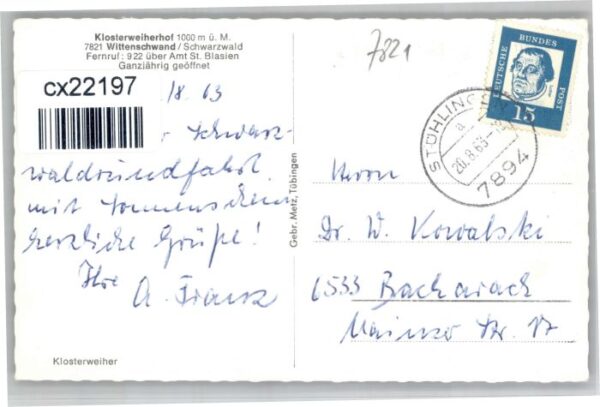 Klosterweiherhof 1000 m ü. M.
7821 Wittenschwand / Schwarzwald
Fernruf: 9 22 über Amt St. Blasien
Ganzjährig geöffnet
7821
DEUTSCHE BUNDESPOST
15
STÜHLINGEN
a
20.8.63
7894
cx22197
/8. 63
Schwarz-
waldrundfahrt
mit
herzliche Grüße!
Ihr
A. Franz
Klosterweiher
Gebr. Metz, Tübingen
Herrn
Dr. W. Kowalski
6533 Bacharach
Mainzer Str. 17